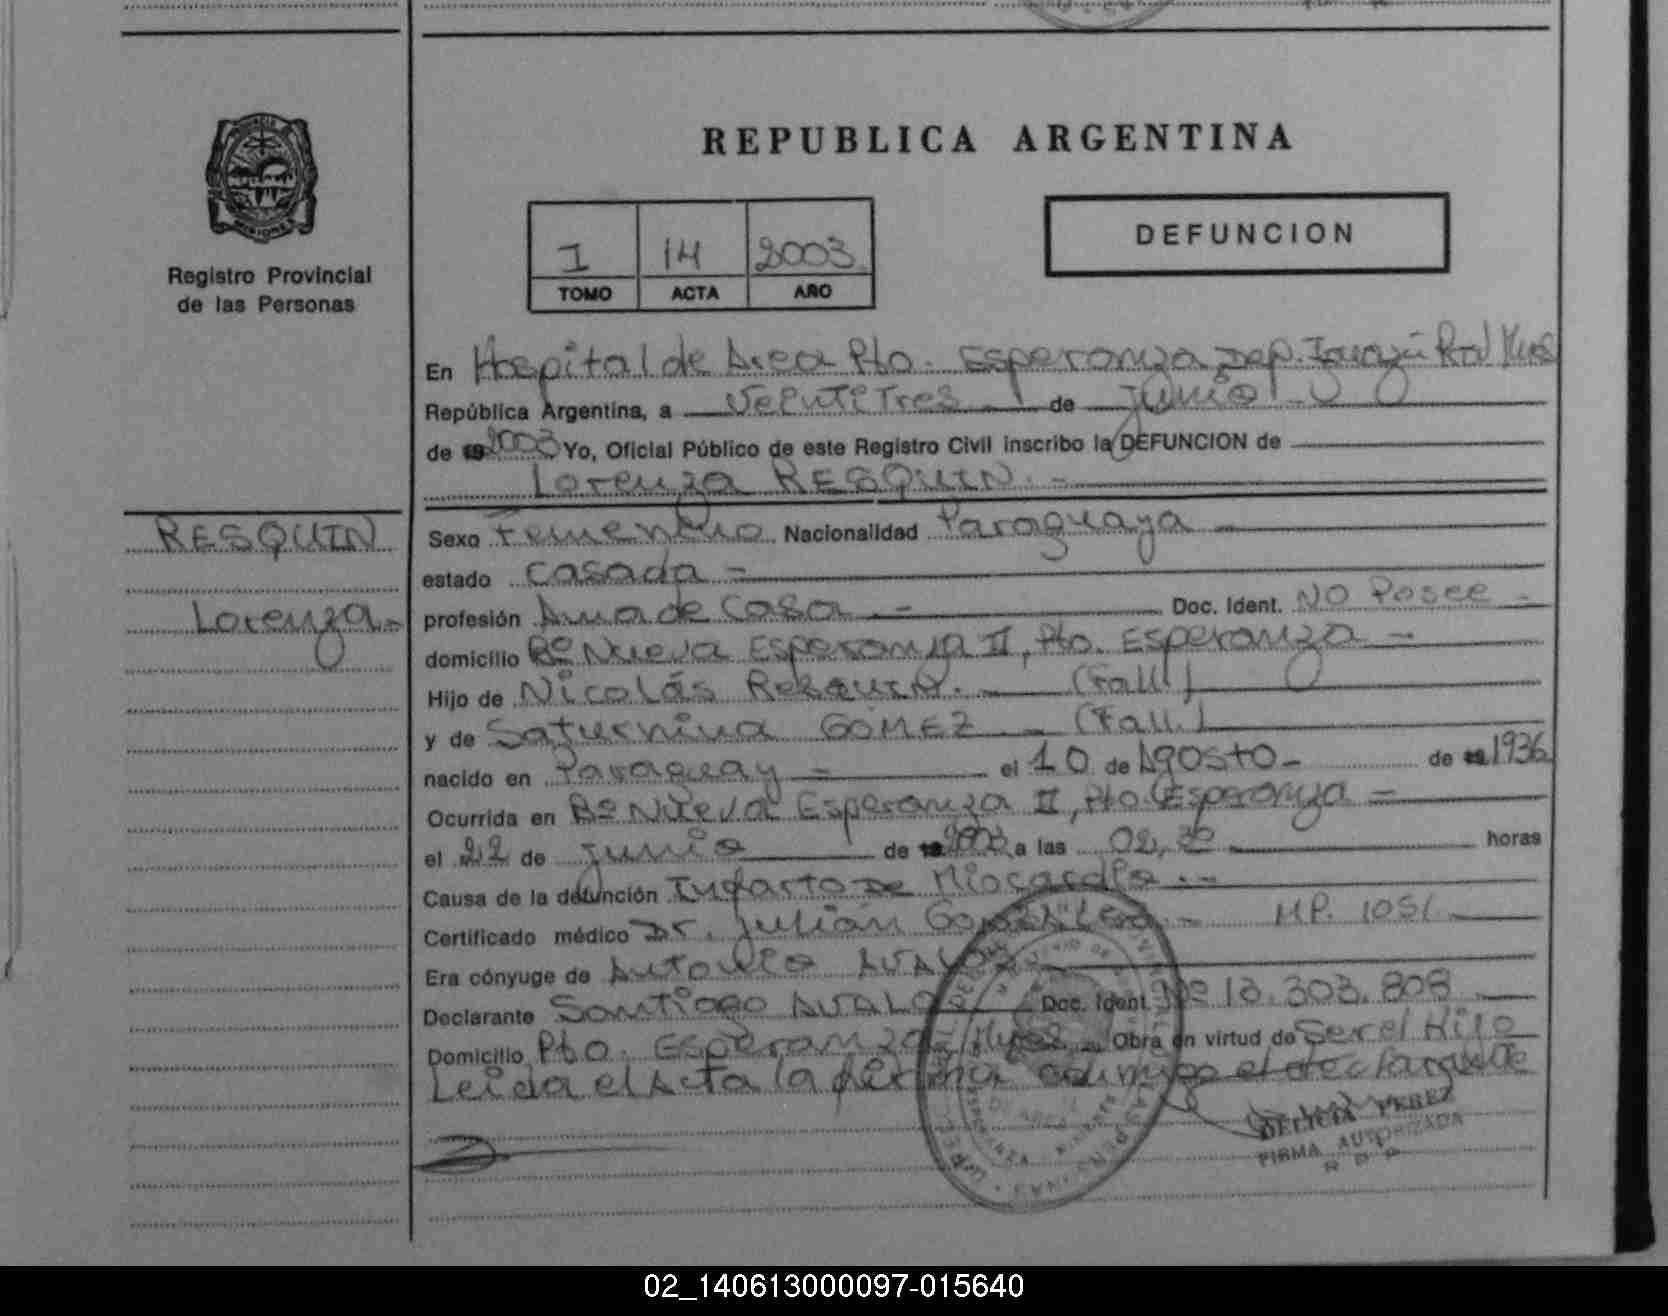 REPUBLICA ARGENTINA
PROVINCIA DE
MISIONES
Registro Provincial
de las Personas
I 14 2003
TOMO ACTA AÑO
DEFUNCION
En Hospital de Area Pto. Esperanza Dep. Iguazú
República Argentina, a veintitres de junio
de 19 2003 Yo, Oficial Público de este Registro Civil inscribo la DEFUNCION de
Lorenza RESQUIN. -
RESQUIN
Lorenza -
Sexo Femenino Nacionalidad Paraguaya
estado Casada -
profesión Ama de Casa - Doc. Ident. NO Posee -
domicilio Bº Nueva Esperanza II, Pto. Esperanza -
Hijo de Nicolás Resquin. - (Fall.)
y de Saturnina GOMEZ - (Fall.)
nacido en Paraguay - el 10 de Agosto - de 19 1936
Ocurrida en Bº Nueva Esperanza II, Pto. Esperanza -
el 22 de junio de 19 2003 a las 02,30 horas
Causa de la defunción Infarto de Miocardio. -
Certificado médico Dr. Julián - MP. 1051
Era cónyuge de Antonio AVALOS
Declarante Santiago AVALOS Doc. Ident. Nº 13.303.808
Domicilio Pto. Esperanza - Mnes Obra en virtud de Ser el Hijo
Leida el Acta la firma conmigo el declarante
DELICIA PEREZ
FIRMA AUTORIZADA
R P P
02_140613000097-015640